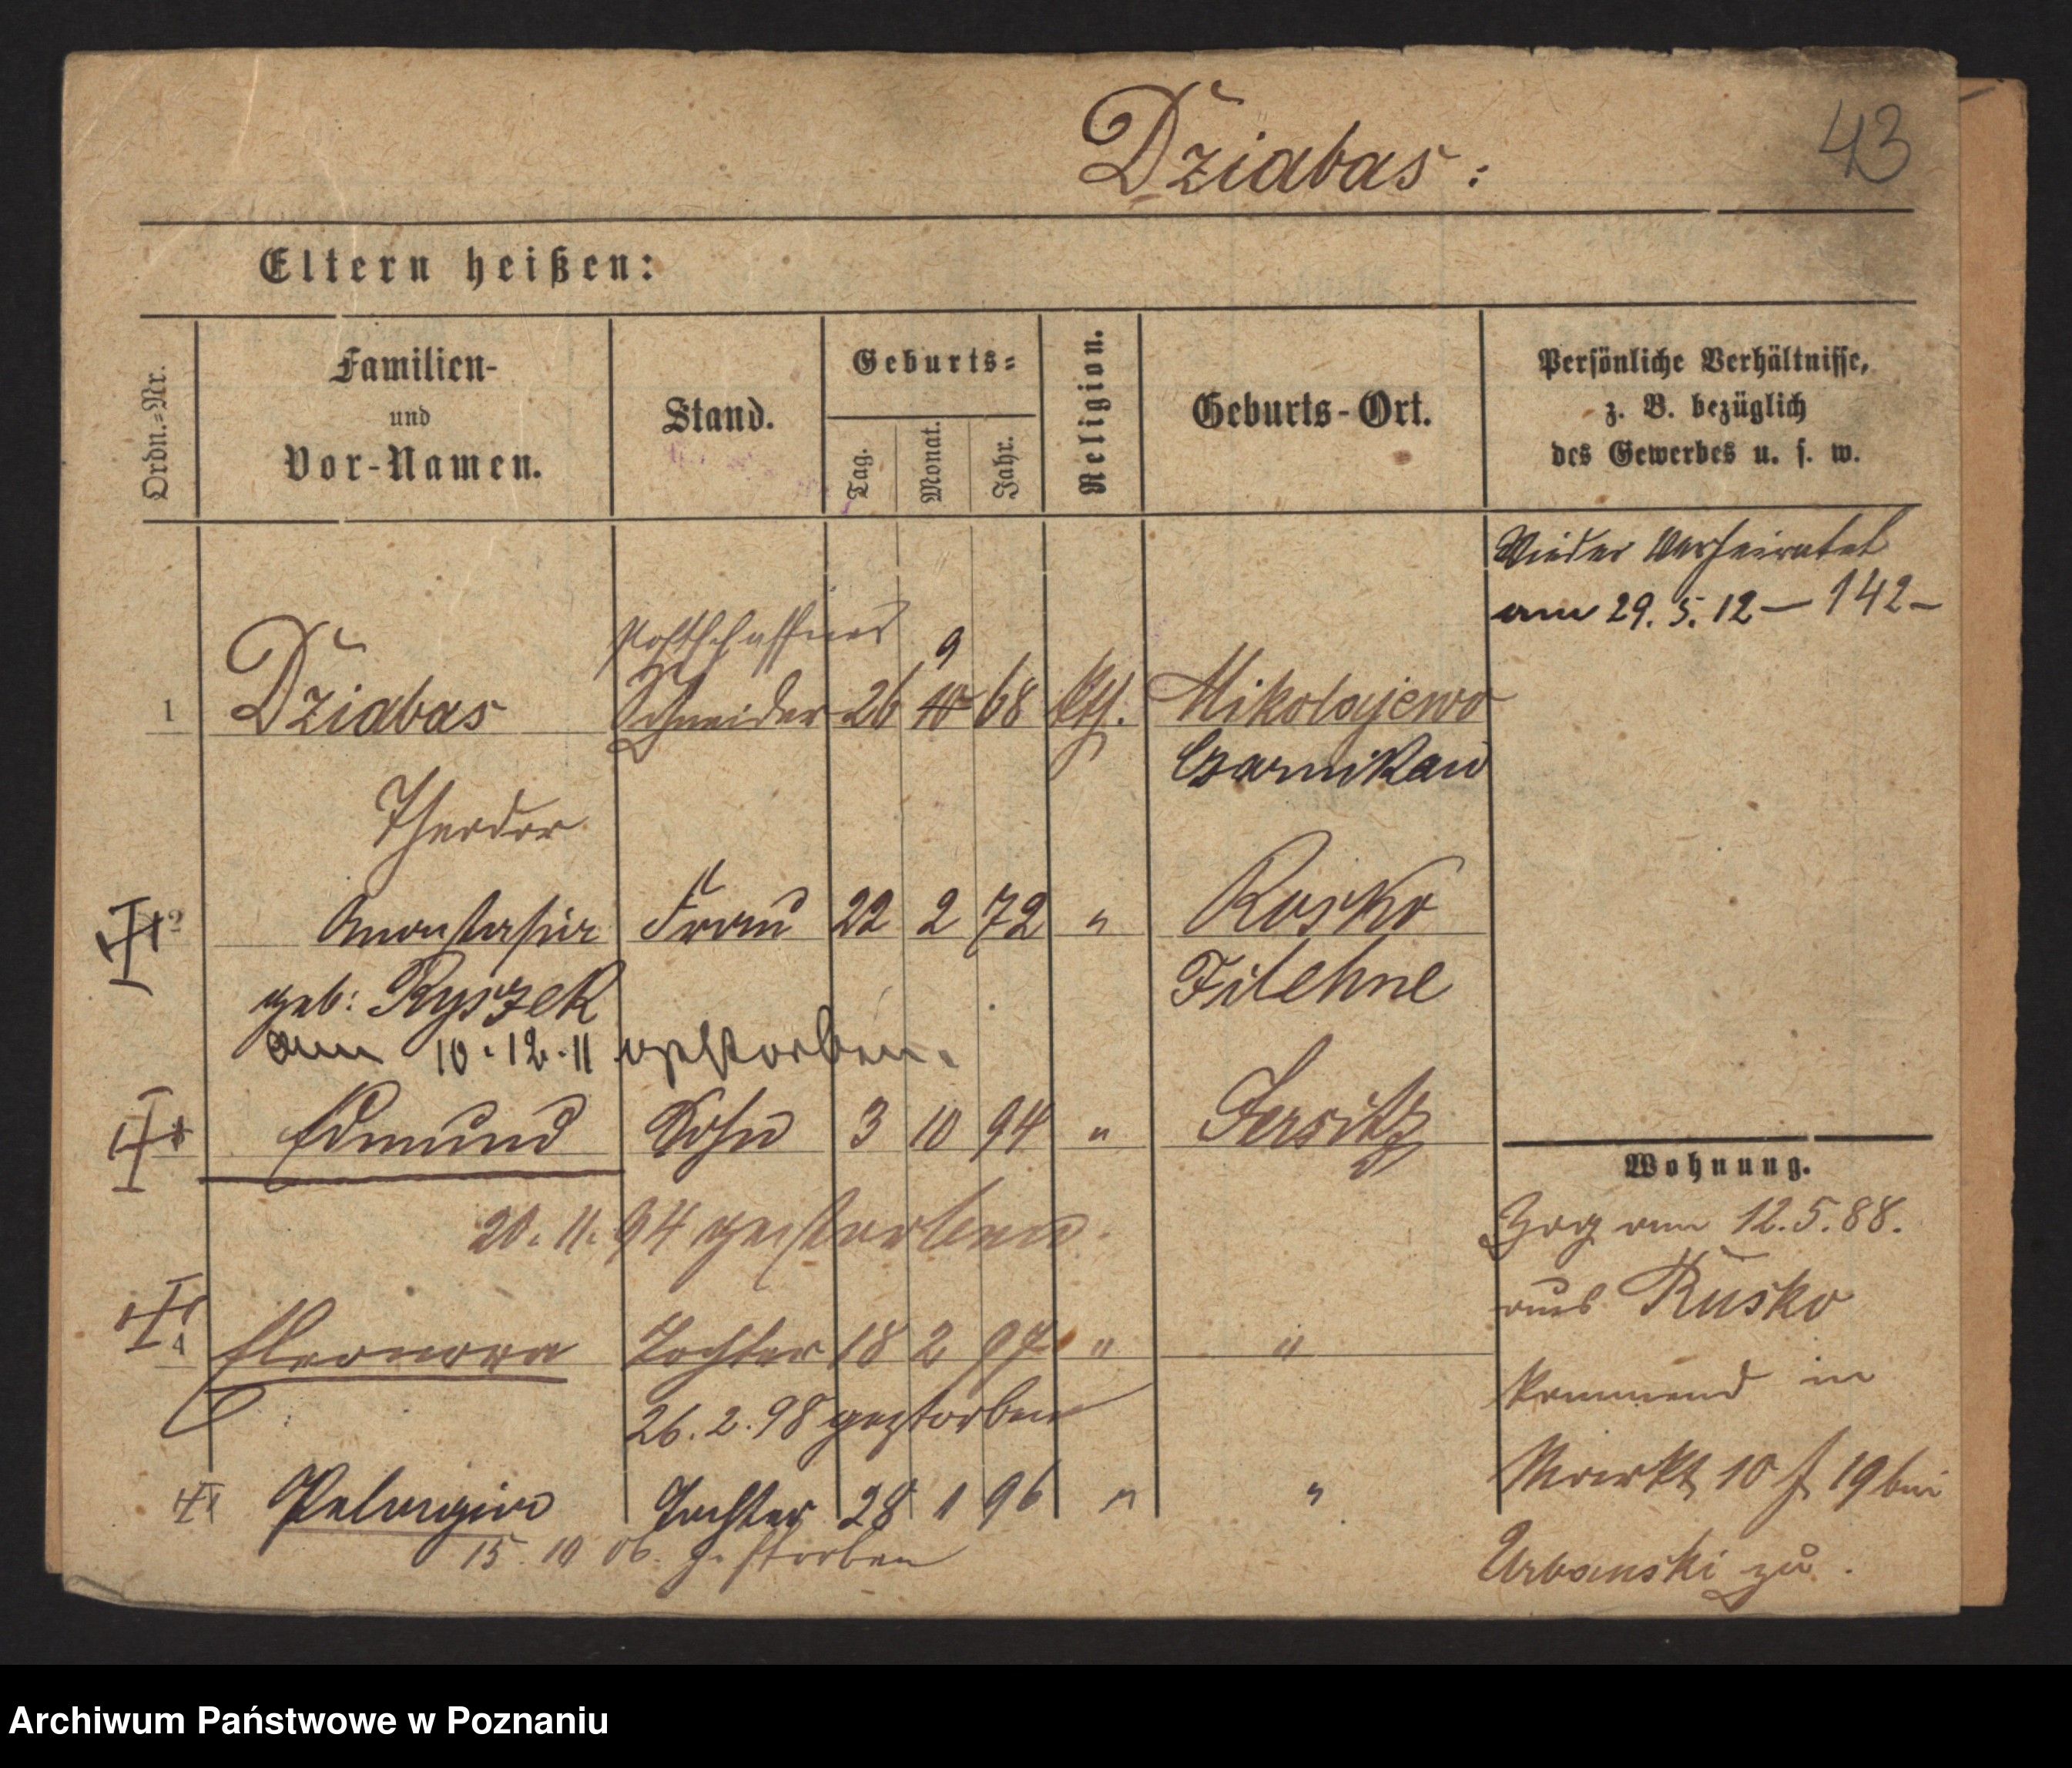 Dziabas:
43
Eltern heißen:
Ordn.-Nr.
Familien-
und
Vor-Namen.
Stand.
Geburts-
Tag.
Monat.
Jahr.
Religion.
Geburts-Ort.
Persönliche Verhältnisse,
z. B. bezüglich
des Gewerbes u. s. w.
Wieder verheiratet
am 29. 5. 12 — 142 –
Postschaffner
9
1 Dziabas Schneider 26 10 68 kth. Mikolajewo
Czarnikau
Theodor
2 Anastasia Frau 22 2 72 " Rosko
geb: Ryszek Filehne
am 10.12.11 gestorben.
Edmund Sohn 3 10 94 " Jersitz
20. 11. 94 gestorben.
4 Eleonora Tochter 18 2 97 " "
26. 2. 98 gestorben
Pelagia Tochter 28 1 96 " "
15. 10 06. gestorben
Wohnung.
Zog am 12. 5. 88.
aus Rusko
kommend in
Markt 10 f 19 bei
Urbanski zu.
Archiwum Państwowe w Poznaniu